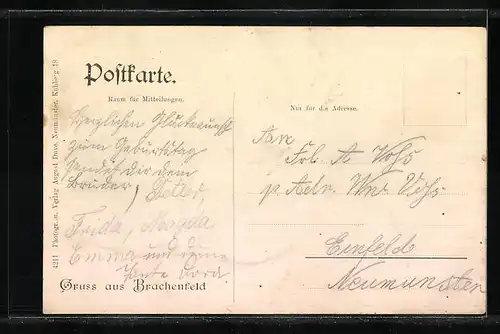 Postkarte.
Raum für Mitteilungen.
Herzlichen Glückwunsch
zum Geburtstag
sendet dir dein
Bruder, Detlev,
Frida, Magda
Emma und deine
Tante Dora
Gruss aus Brachenfeld
4211 Photogr. u. Verlag August Puus, Neumünster, Kuhberg 19.
Nur für die Adresse.
An
Frl. A Vohs
p. Adr. Wwe Vohs
Einfeld
Neumünster